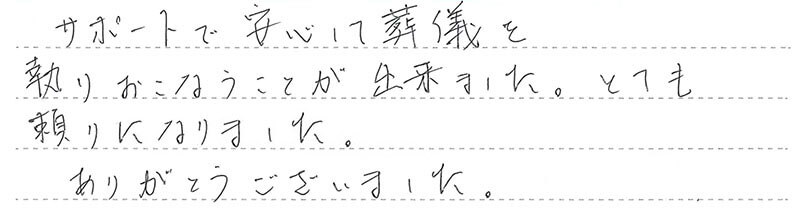 サポートで安心して葬儀を
執りおこなうことが出来ました。とても
頼りになりました。
ありがとうございました。